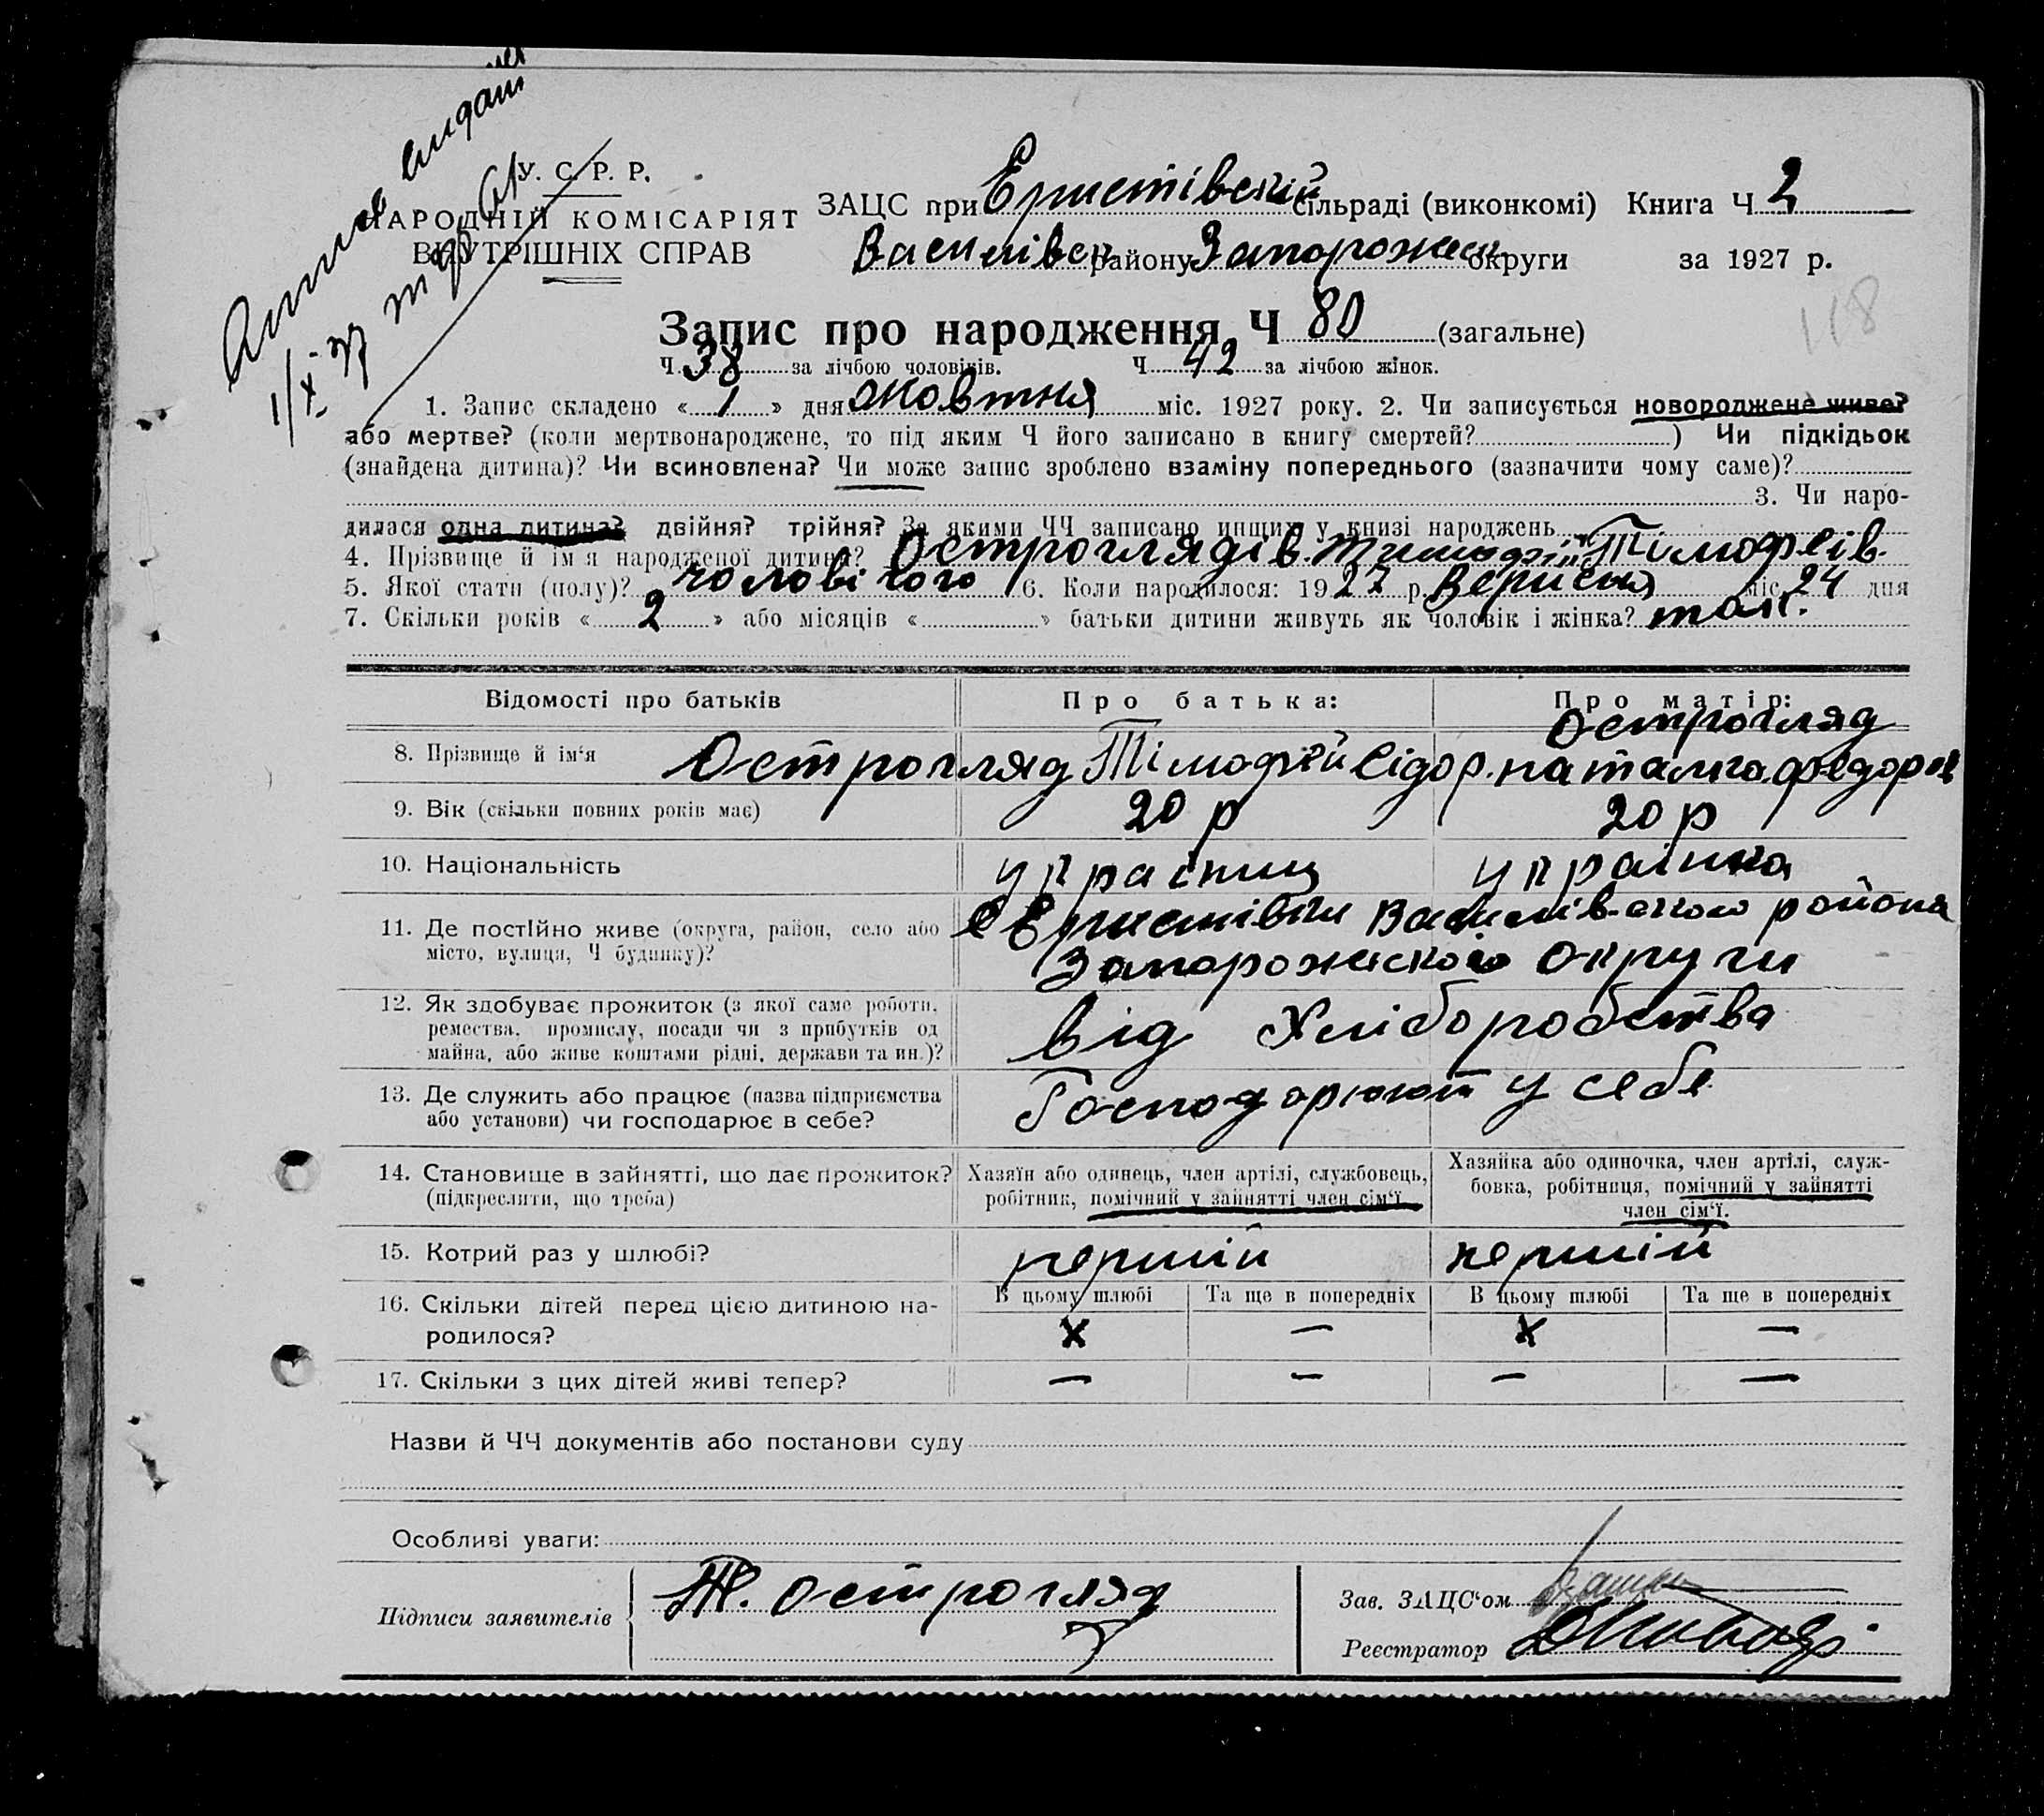 У. С. Р. Р.
НАРОДНІЙ КОМІСАРІЯТ
ВНУТРІШНІХ СПРАВ
ЗАЦС при Ернстівскій сільраді (виконкомі) Книга Ч 2
Василівск району Запорожськ округи за 1927 р.
118
Запис про народження Ч 80 (загальне)
Ч 38 за лічбою чоловіків. Ч 42 за лічбою жінок.
1. Запис складено « 1 » дня жовтня міс. 1927 року. 2. Чи записується новороджене живе?
або мертве? (коли мертвонароджене, то під яким Ч його записано в книгу смертей? ) Чи підкідьок
(знайдена дитина)? Чи всиновлена? Чи може запис зроблено взаміну попереднього (зазначити чому саме)?
3. Чи наро-
дилася одна дитина? двійня? трійня? За якими ЧЧ записано инших у книзі народжень
4. Прізвище й ім'я народженої дитини? Остроглядів Тімофеів.
5. Якої стати (полу)? чоловічого 6. Коли народилося: 1927 р. Вериснія міс. 24 дня
7. Скільки років « 2 » або місяців « » батьки дитини живуть як чоловік і жінка? так.
Відомості про батьків Про батька: Про матір:
Острогляд
8. Прізвище й ім'я Острогляд Тімофій Сідор. наталка федоров
9. Вік (скільки повних років має) 20 р 20 р
10. Національність украінец украінка
11. Де постійно живе (округа, район, село або с Ернстівки Василів-ского района
місто, вулиця, Ч будинку)? Запорожского Округи
12. Як здобуває прожиток (з якої саме роботи,
ремества, промислу, посади чи з прибутків од від Хліборобства
майна, або живе коштами рідні, держави та ин.)?
13. Де служить або працює (назва підприємства Господарюют у себе
або установи) чи господарює в себе?
14. Становище в зайнятті, що дає прожиток? Хазяїн або одинець, член артілі, службовець, Хазяйка або одиночка, член артілі, служ-
(підкреслити, що треба) робітник, помічний у зайнятті член сім'ї бовка, робітниця, помічний у зайнятті
член сім'ї.
15. Котрий раз у шлюбі? першій першій
16. Скільки дітей перед цією дитиною на- В цьому шлюбі Та ще в попередніх В цьому шлюбі Та ще в попередніх
родилося? х — х —
17. Скільки з цих дітей живі тепер? — — — —
Назви й ЧЧ документів або постанови суду
Особливі уваги:
Підписи заявителів Т. Острогляд
Зав. ЗАЦС'ом
Реєстратор